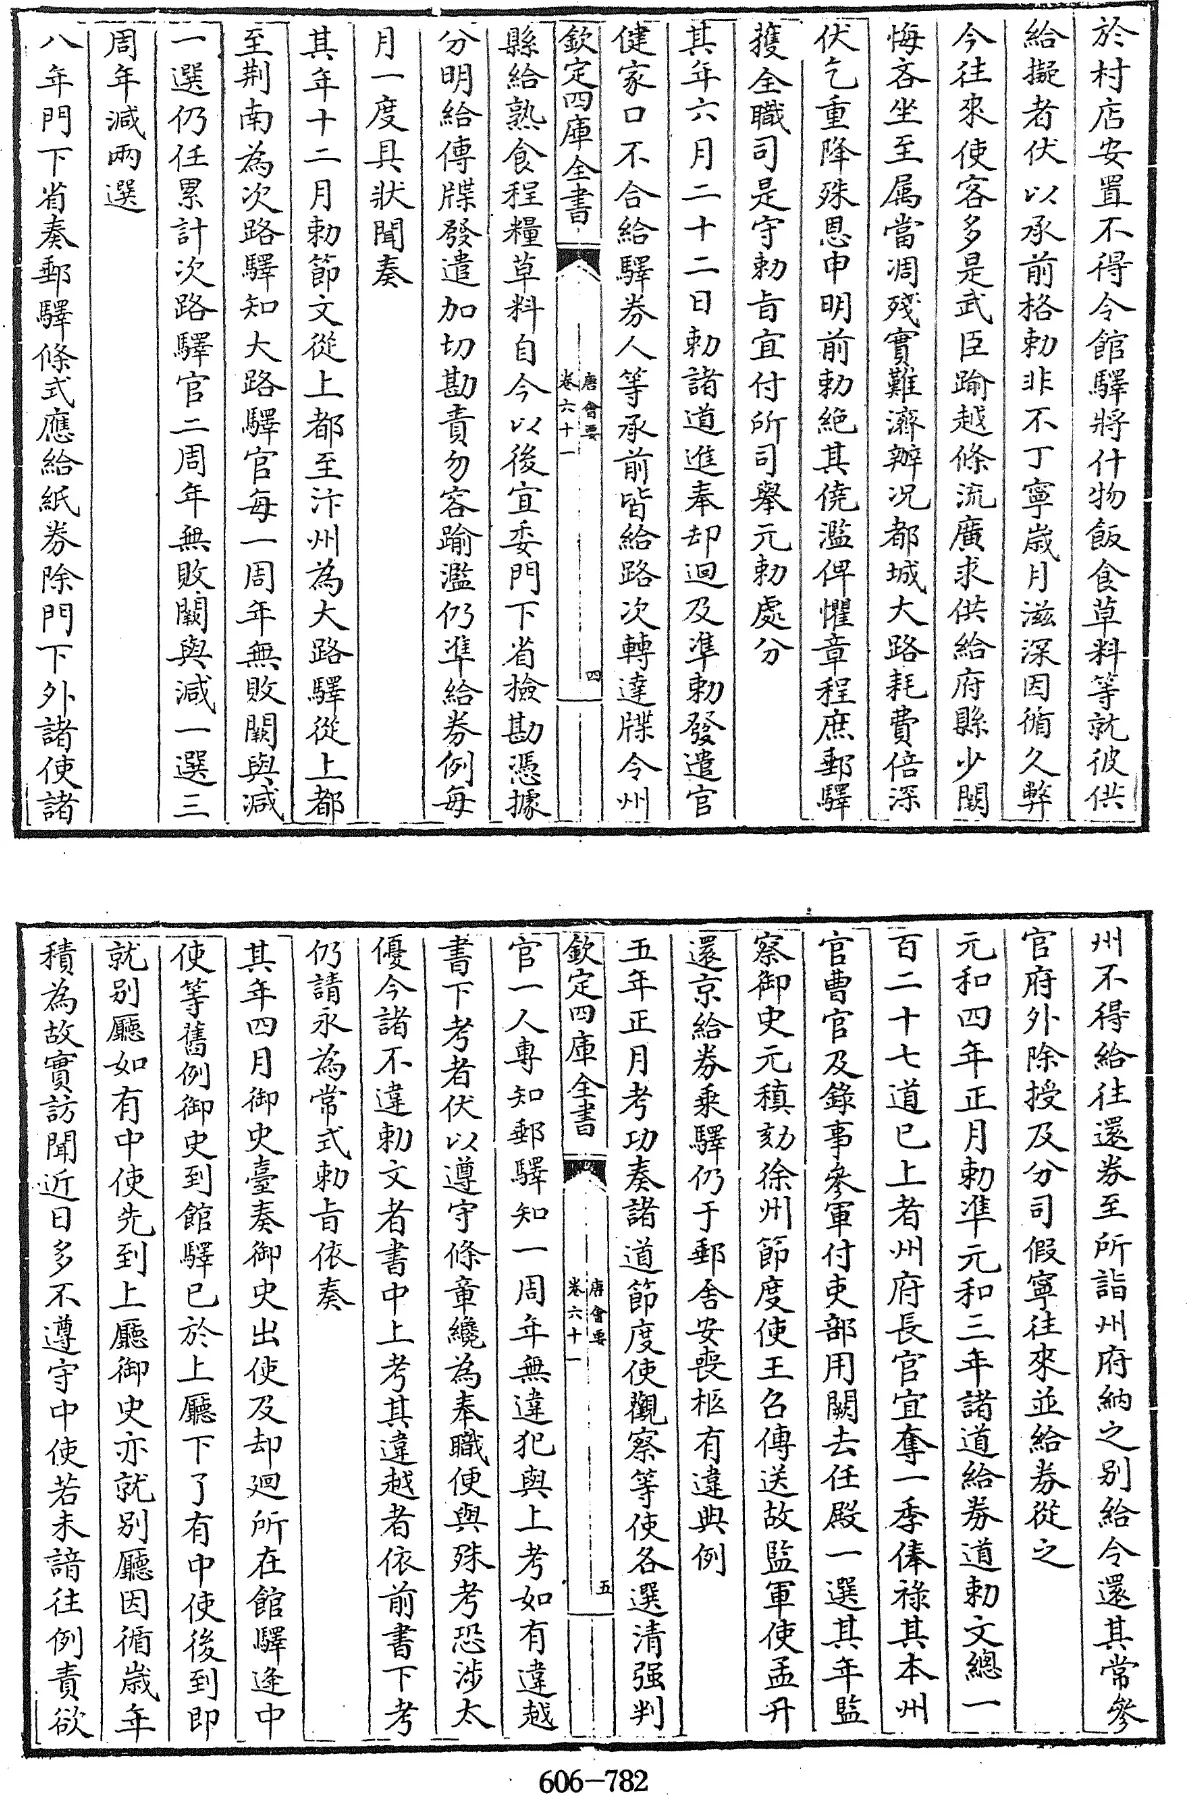 於村店安置不得令館驛將什物飯食草料等就彼供
給擬者伏以承前格勅非不丁寧歲月滋深因循久弊
今往來使客多是武臣踰越條流廣求供給府縣少闕
悔吝坐至属當凋殘實難濟辦况都城大路耗費倍深
伏乞重降殊恩申明前勅絶其僥濫俾懼章程庶郵驛
獲全職司是守勅㫖宜付所司舉元勅處分
其年六月二十二日勅諸道進奉却迴及準勅發遣官
健家口不合給驛券人等承前皆給路次轉達牒令州
欽定四庫全書
唐會要
卷六十一
四
縣給熟食程糧草料自今以後宜委門下省檢勘憑據
分明給傳牒發遣加切勘責勿容踰濫仍準給券例每
月一度具狀聞奏
其年十二月勅節文從上都至汴州為大路驛從上都
至荆南為次路驛知大路驛官每一周年無敗闕與減
一選仍任累計次路驛官二周年無敗闕與減一選三
周年減兩選
八年門下省奏郵驛條式應給紙券除門下外諸使諸
州不得給往還券至所詣州府納之别給令還其常參
官府外除授及分司假寧往來並給券從之
元和四年正月勅準元和三年諸道給券道勅文總一
百二十七道已上者州府長官宜奪一季俸禄其本州
官曹官及錄事參軍付吏部用闕去任殿一選其年監
察御史元稹劾徐州節度使王召傳送故監軍使孟升
還京給券乘驛仍于郵舍安喪柩有違典例
五年正月考功奏諸道節度使觀察等使各選清强判
欽定四庫全書
唐會要
卷六十一
五
官一人專知郵驛知一周年無違犯與上考如有違越
書下考者伏以遵守條章纔為奉職便與殊考恐涉太
優今諸不違勅文者書中上考其違越者依前書下考
仍請永為常式勅㫖依奏
其年四月御史臺奏御史出使及却廻所在館驛逢中
使等舊例御史到館驛已於上廳下了有中使後到即
就别廳如有中使先到上廳御史亦就别廳因循歲年
積為故實訪聞近日多不遵守中使若未諳往例責欲
606-782